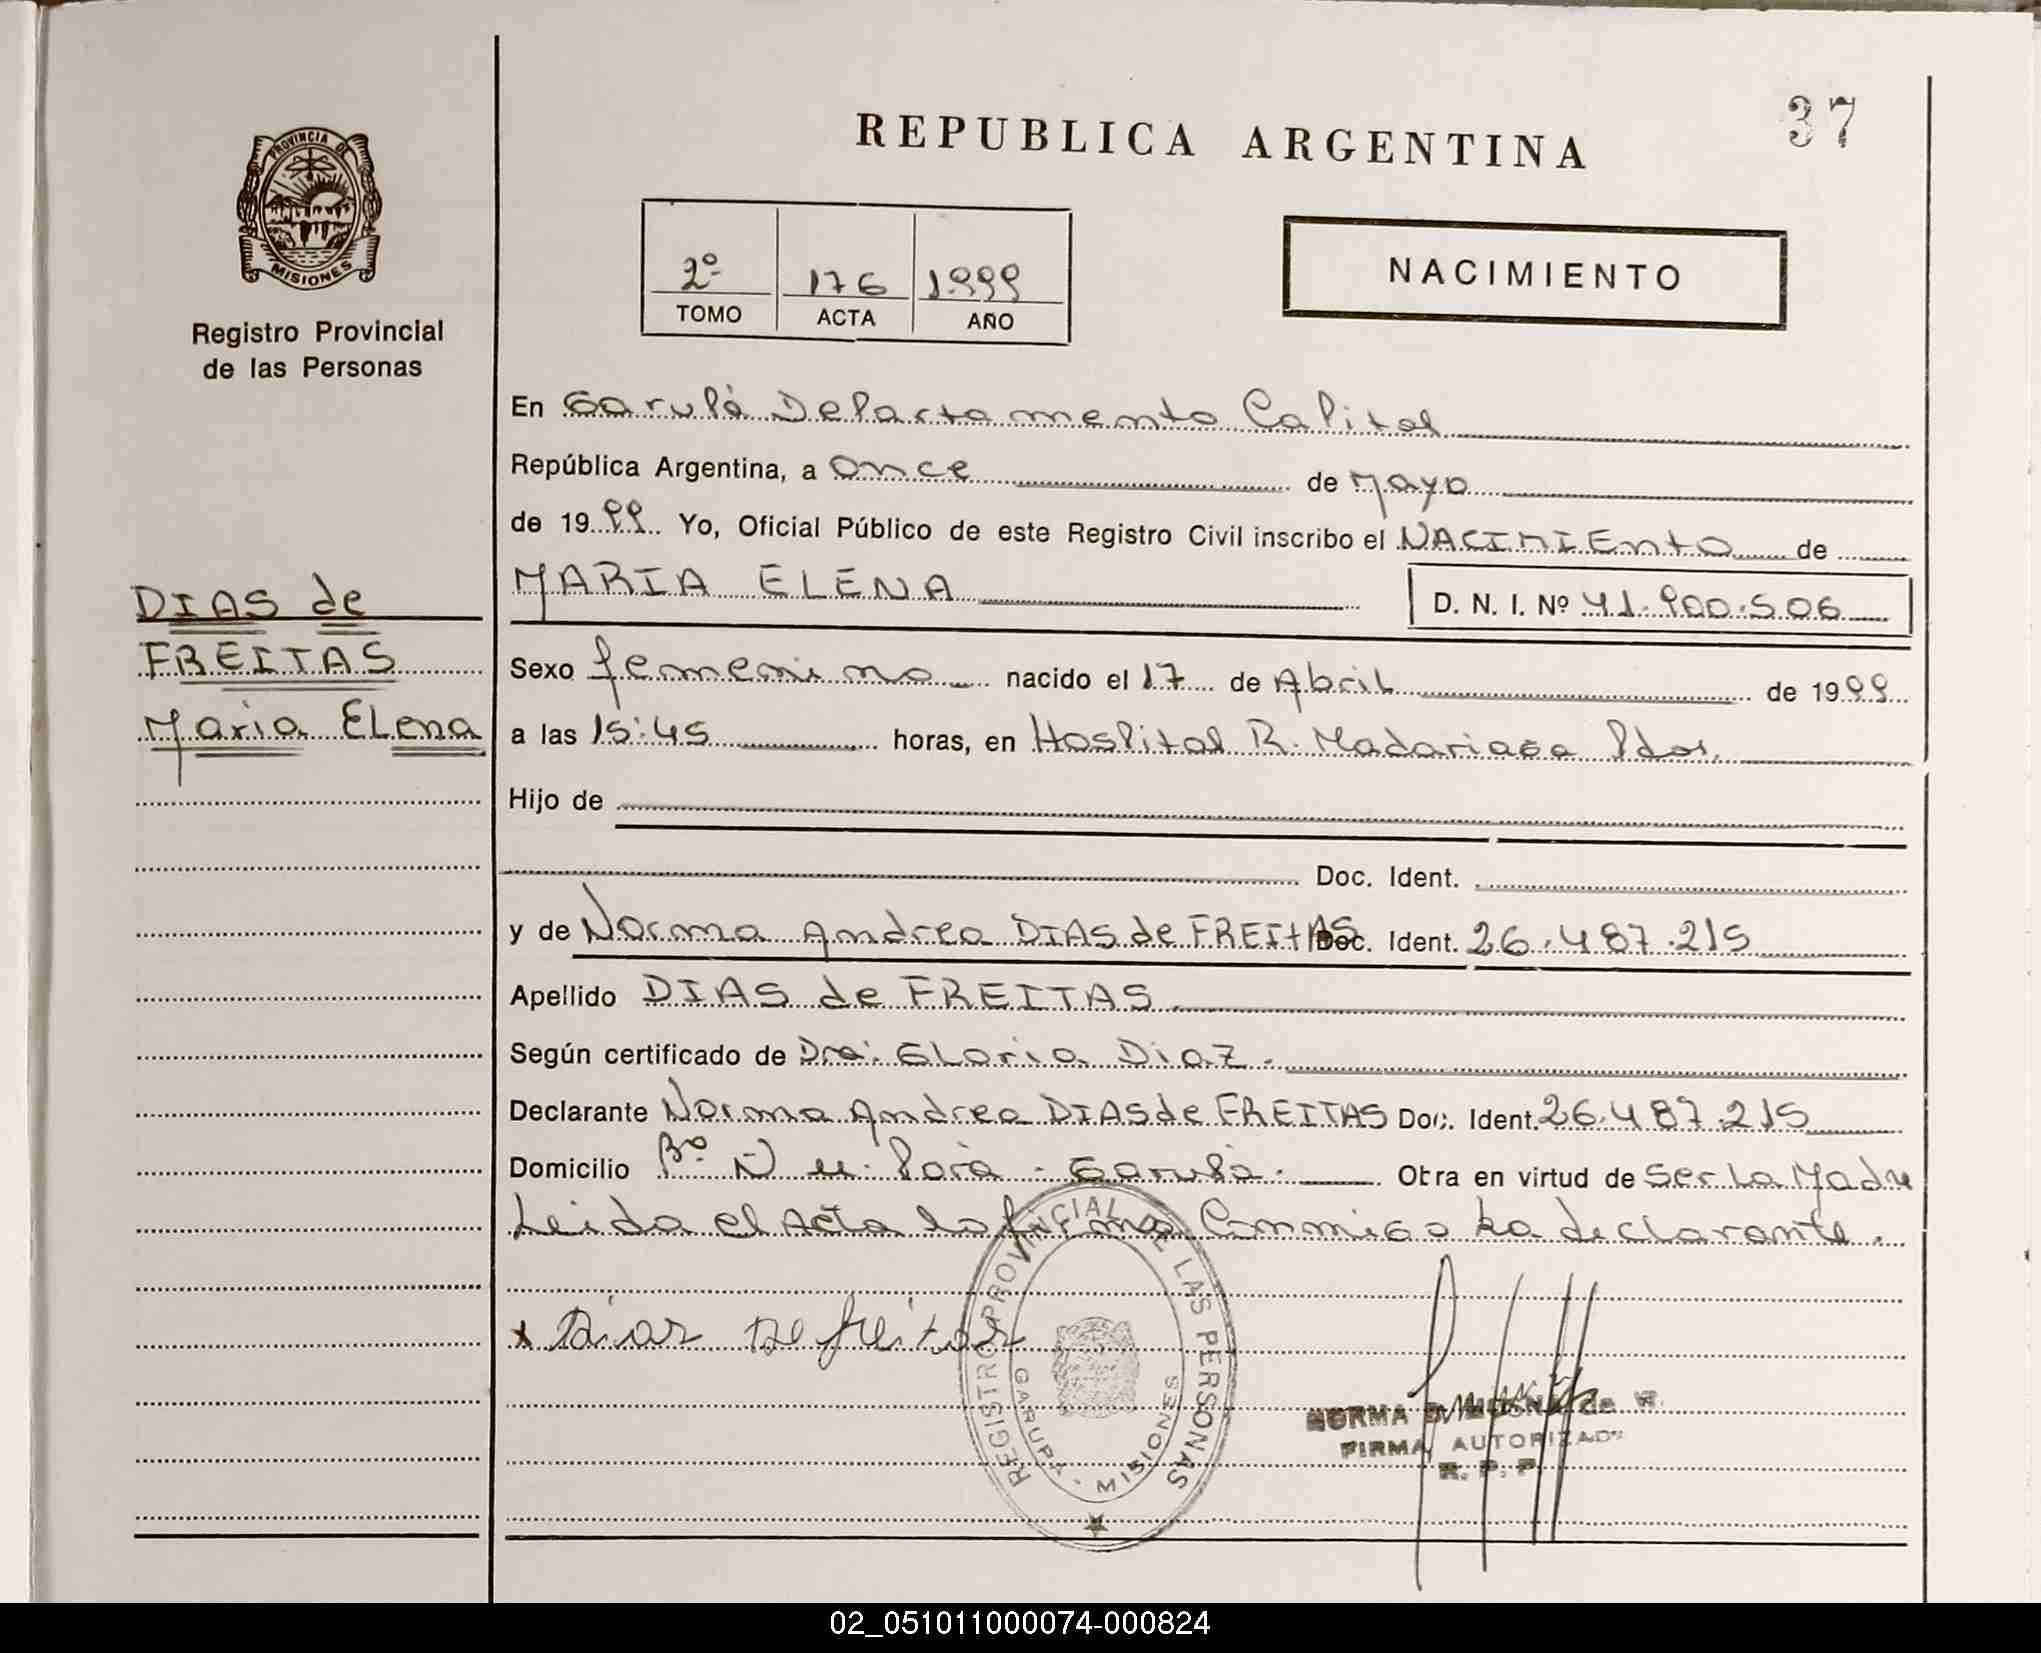 37
REPUBLICA ARGENTINA
PROVINCIA DE
MISIONES
Registro Provincial
de las Personas
2º 176 1999
TOMO ACTA AÑO
NACIMIENTO
En Garupá Departamento Capital
República Argentina, a once de Mayo
de 1999 Yo, Oficial Público de este Registro Civil inscribo el NACIMIENTO de
MARIA ELENA D. N. I. Nº 41.900.506
DIAS de
FREITAS
Maria ELena
Sexo femenino nacido el 17 de Abril de 1999
a las 15:45 horas, en Hospital R. Madariaga Pdas.
Hijo de
Doc. Ident.
y de Norma Andrea DIAS de FREITAS Doc. Ident. 26.487.215
Apellido DIAS de FREITAS
Según certificado de Dra: GLoria Diaz.
Declarante Norma Andrea DIAS de FREITAS Doc. Ident. 26.487.215
Domicilio Bº Ñu Porá - Garupá. Otra en virtud de Ser La Madre
Leida el Acta la firma Conmigo La declarante.
x Dias De freitas
REGISTRO PROVINCIAL DE LAS PERSONAS
GARUPA - MISIONES
NORMA de
FIRMA AUTORIZADA
R. P. P.
02_051011000074-000824